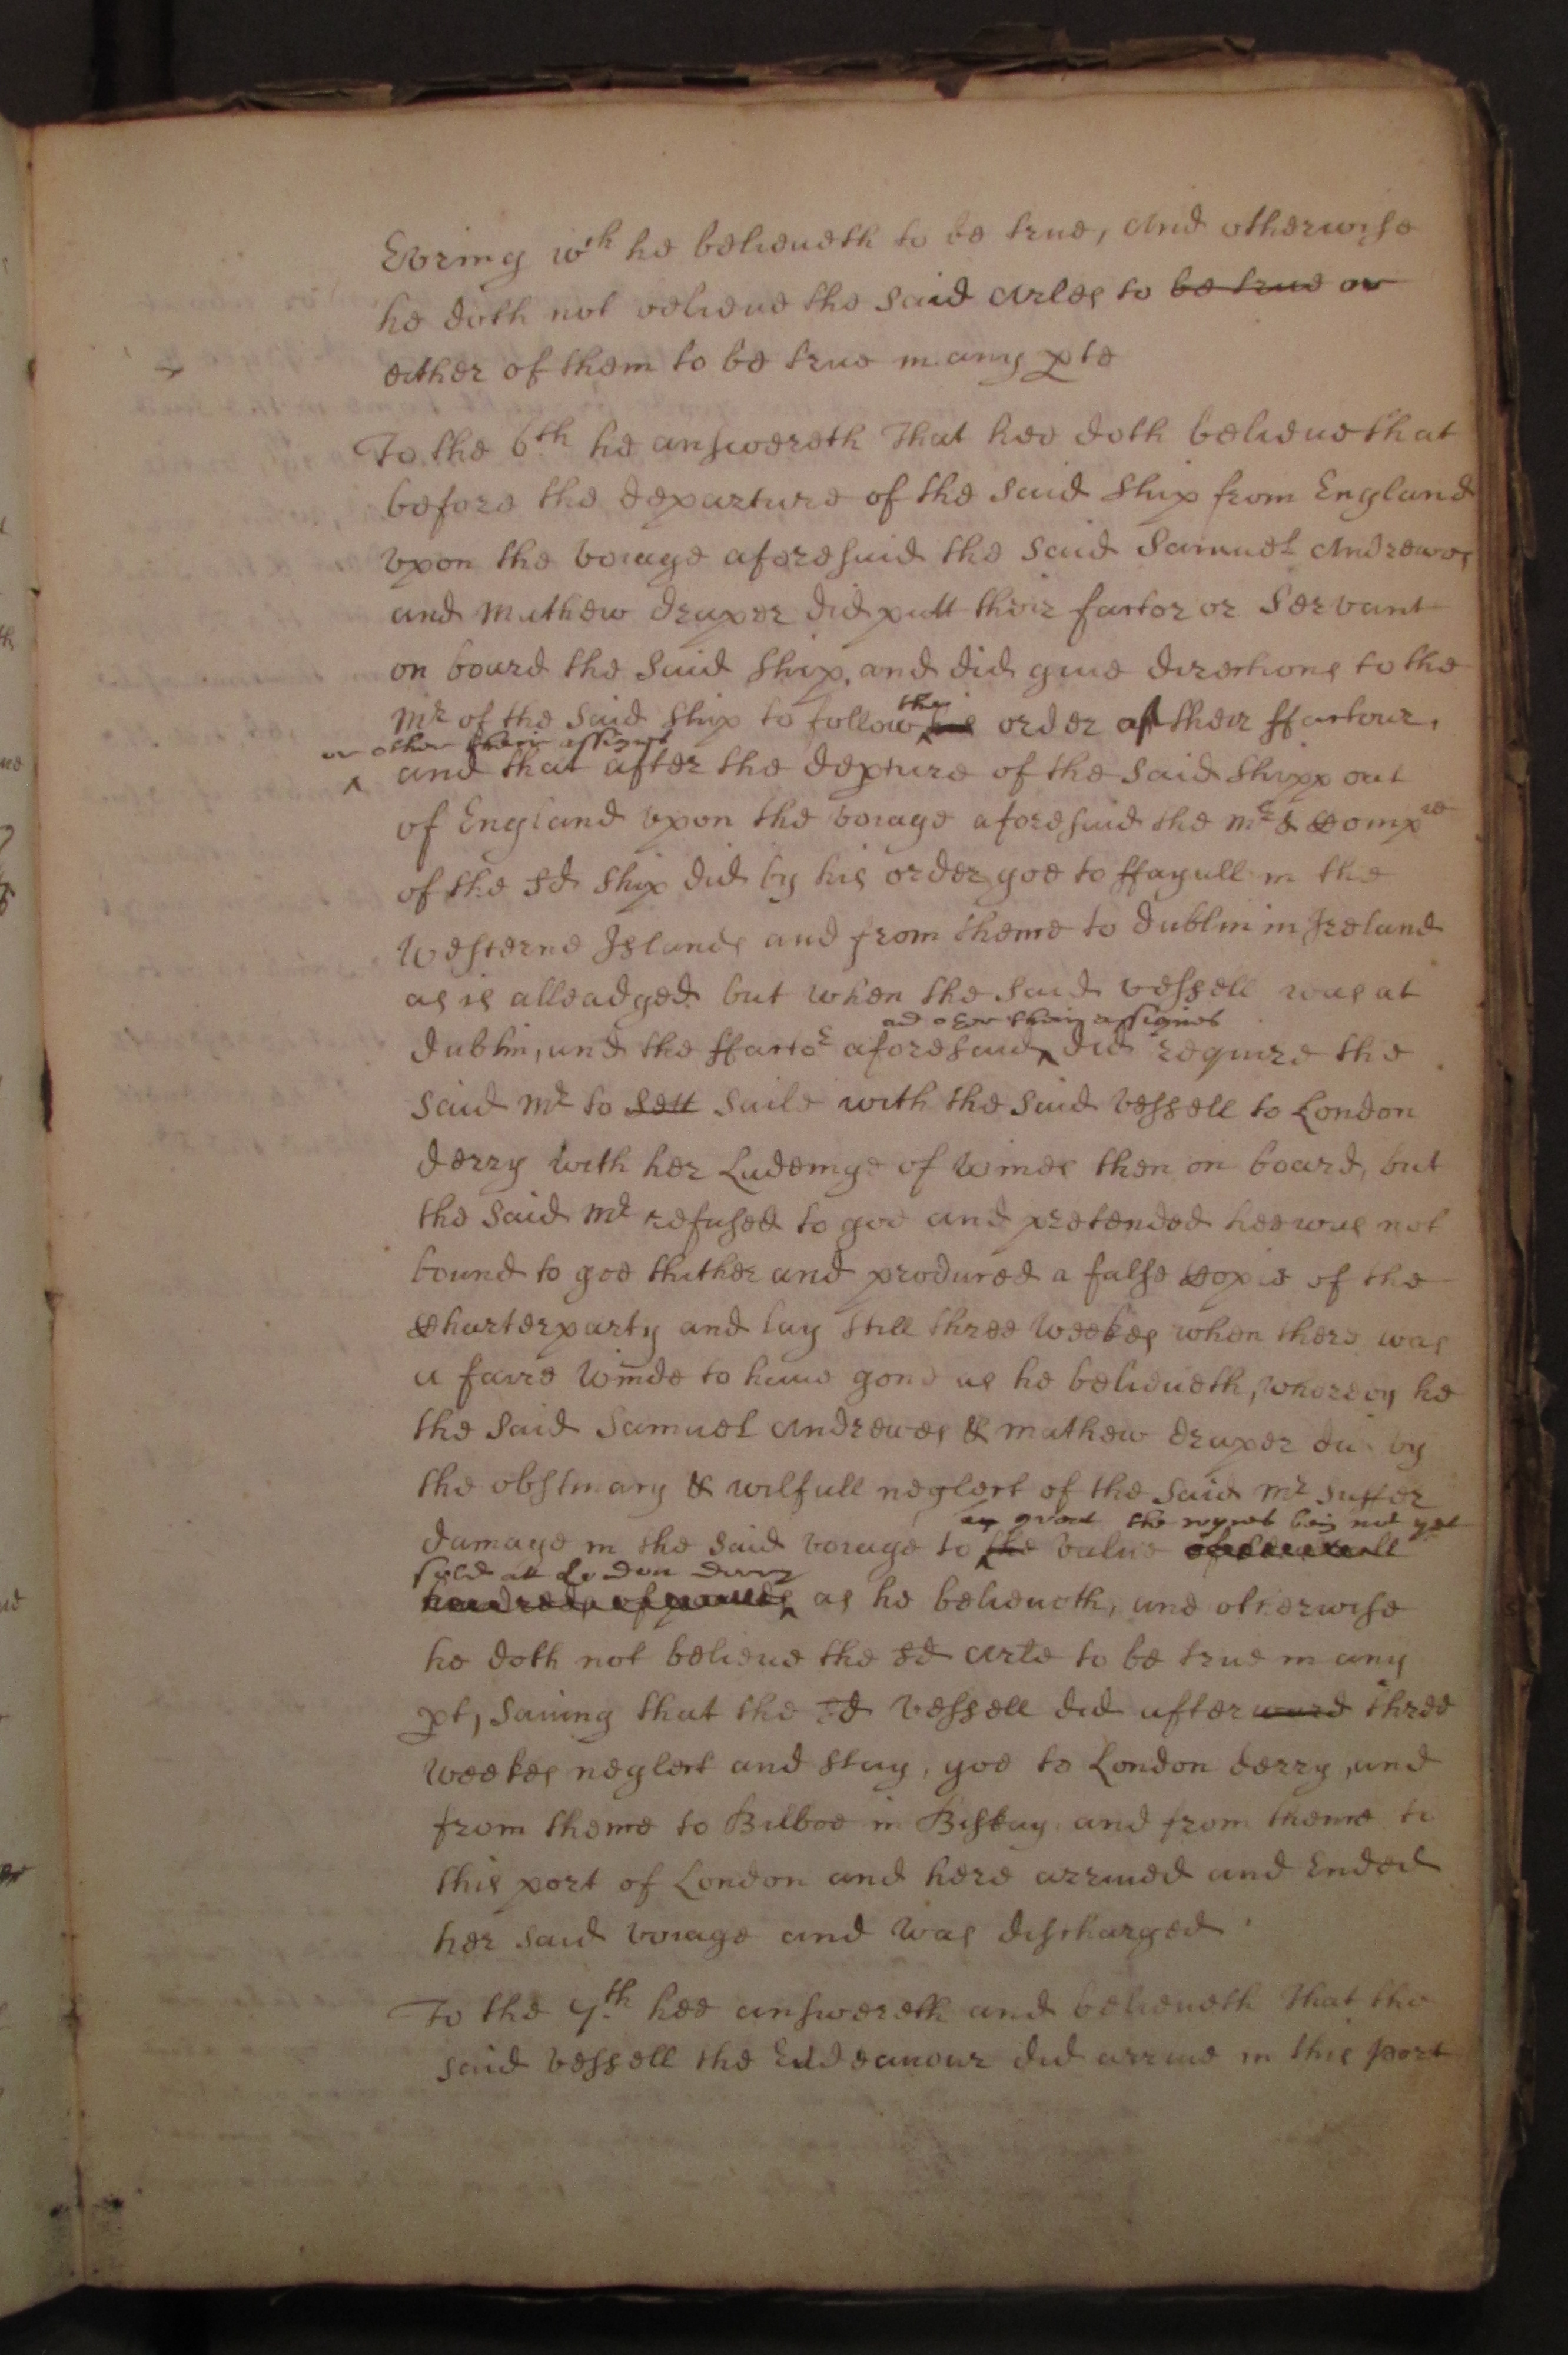 Ewring wch he belieueth to be true, And otherwise
he doth not belieue the said Arles to be true or
either of them to be true in any pte
To the 6th he answereth That hee doth belieue that
before the departure of the said Ship from England
vpon the voiage aforesaid the said Samuel Andrewes
and Mathew Draper did putt their factor or Servant
on board the said Ship, and did giue directions to the
the
Mr of the said Ship to follow his order of their ffactour,
or other their assignes
and that after the depture of the said Shipp out
of England vpon the voiage aforesaid the Mr & Compie
of the sd Ship did by his order goe to ffayall in the
Westerne Islands and from thence to Dublin in Ireland
as is alleadged but when the said vessell was at
and other their assignes
Dublin, and the ffactor aforesaid did require the
said Mr to sett saile with the said vessell to London
derry with her Ladeinge of wines then on board, but
the said Mr refused to goe and pretended hee was not
bound to goe thither and produced a false Copie of the
Charterparty and lay still three weekes when there was
a faire winde to haue gone as he belieueth, whereby he
the said Samuel Andrewes & Mathew Draper did by
the obstinacy & wilfull neglect of the said Mr suffer
great the wynes being not yet
damage in the said voiage to the value of seuerall
sold att London derry
hundreds of pounds as he belieueth, and otherwise
he doth not belieue the sd Arle to be true in any
pt, sauing that the sd vessell did afterward three
weekes neglect and stay, goe to London derry, and
from thence to Bilboe in Biskay and from thence to
this port of London and here arriued and Ended
her said voiage and was discharged
To the 7th hee answereth and belieueth That the
said vessell the Endeauour did arriue in this port